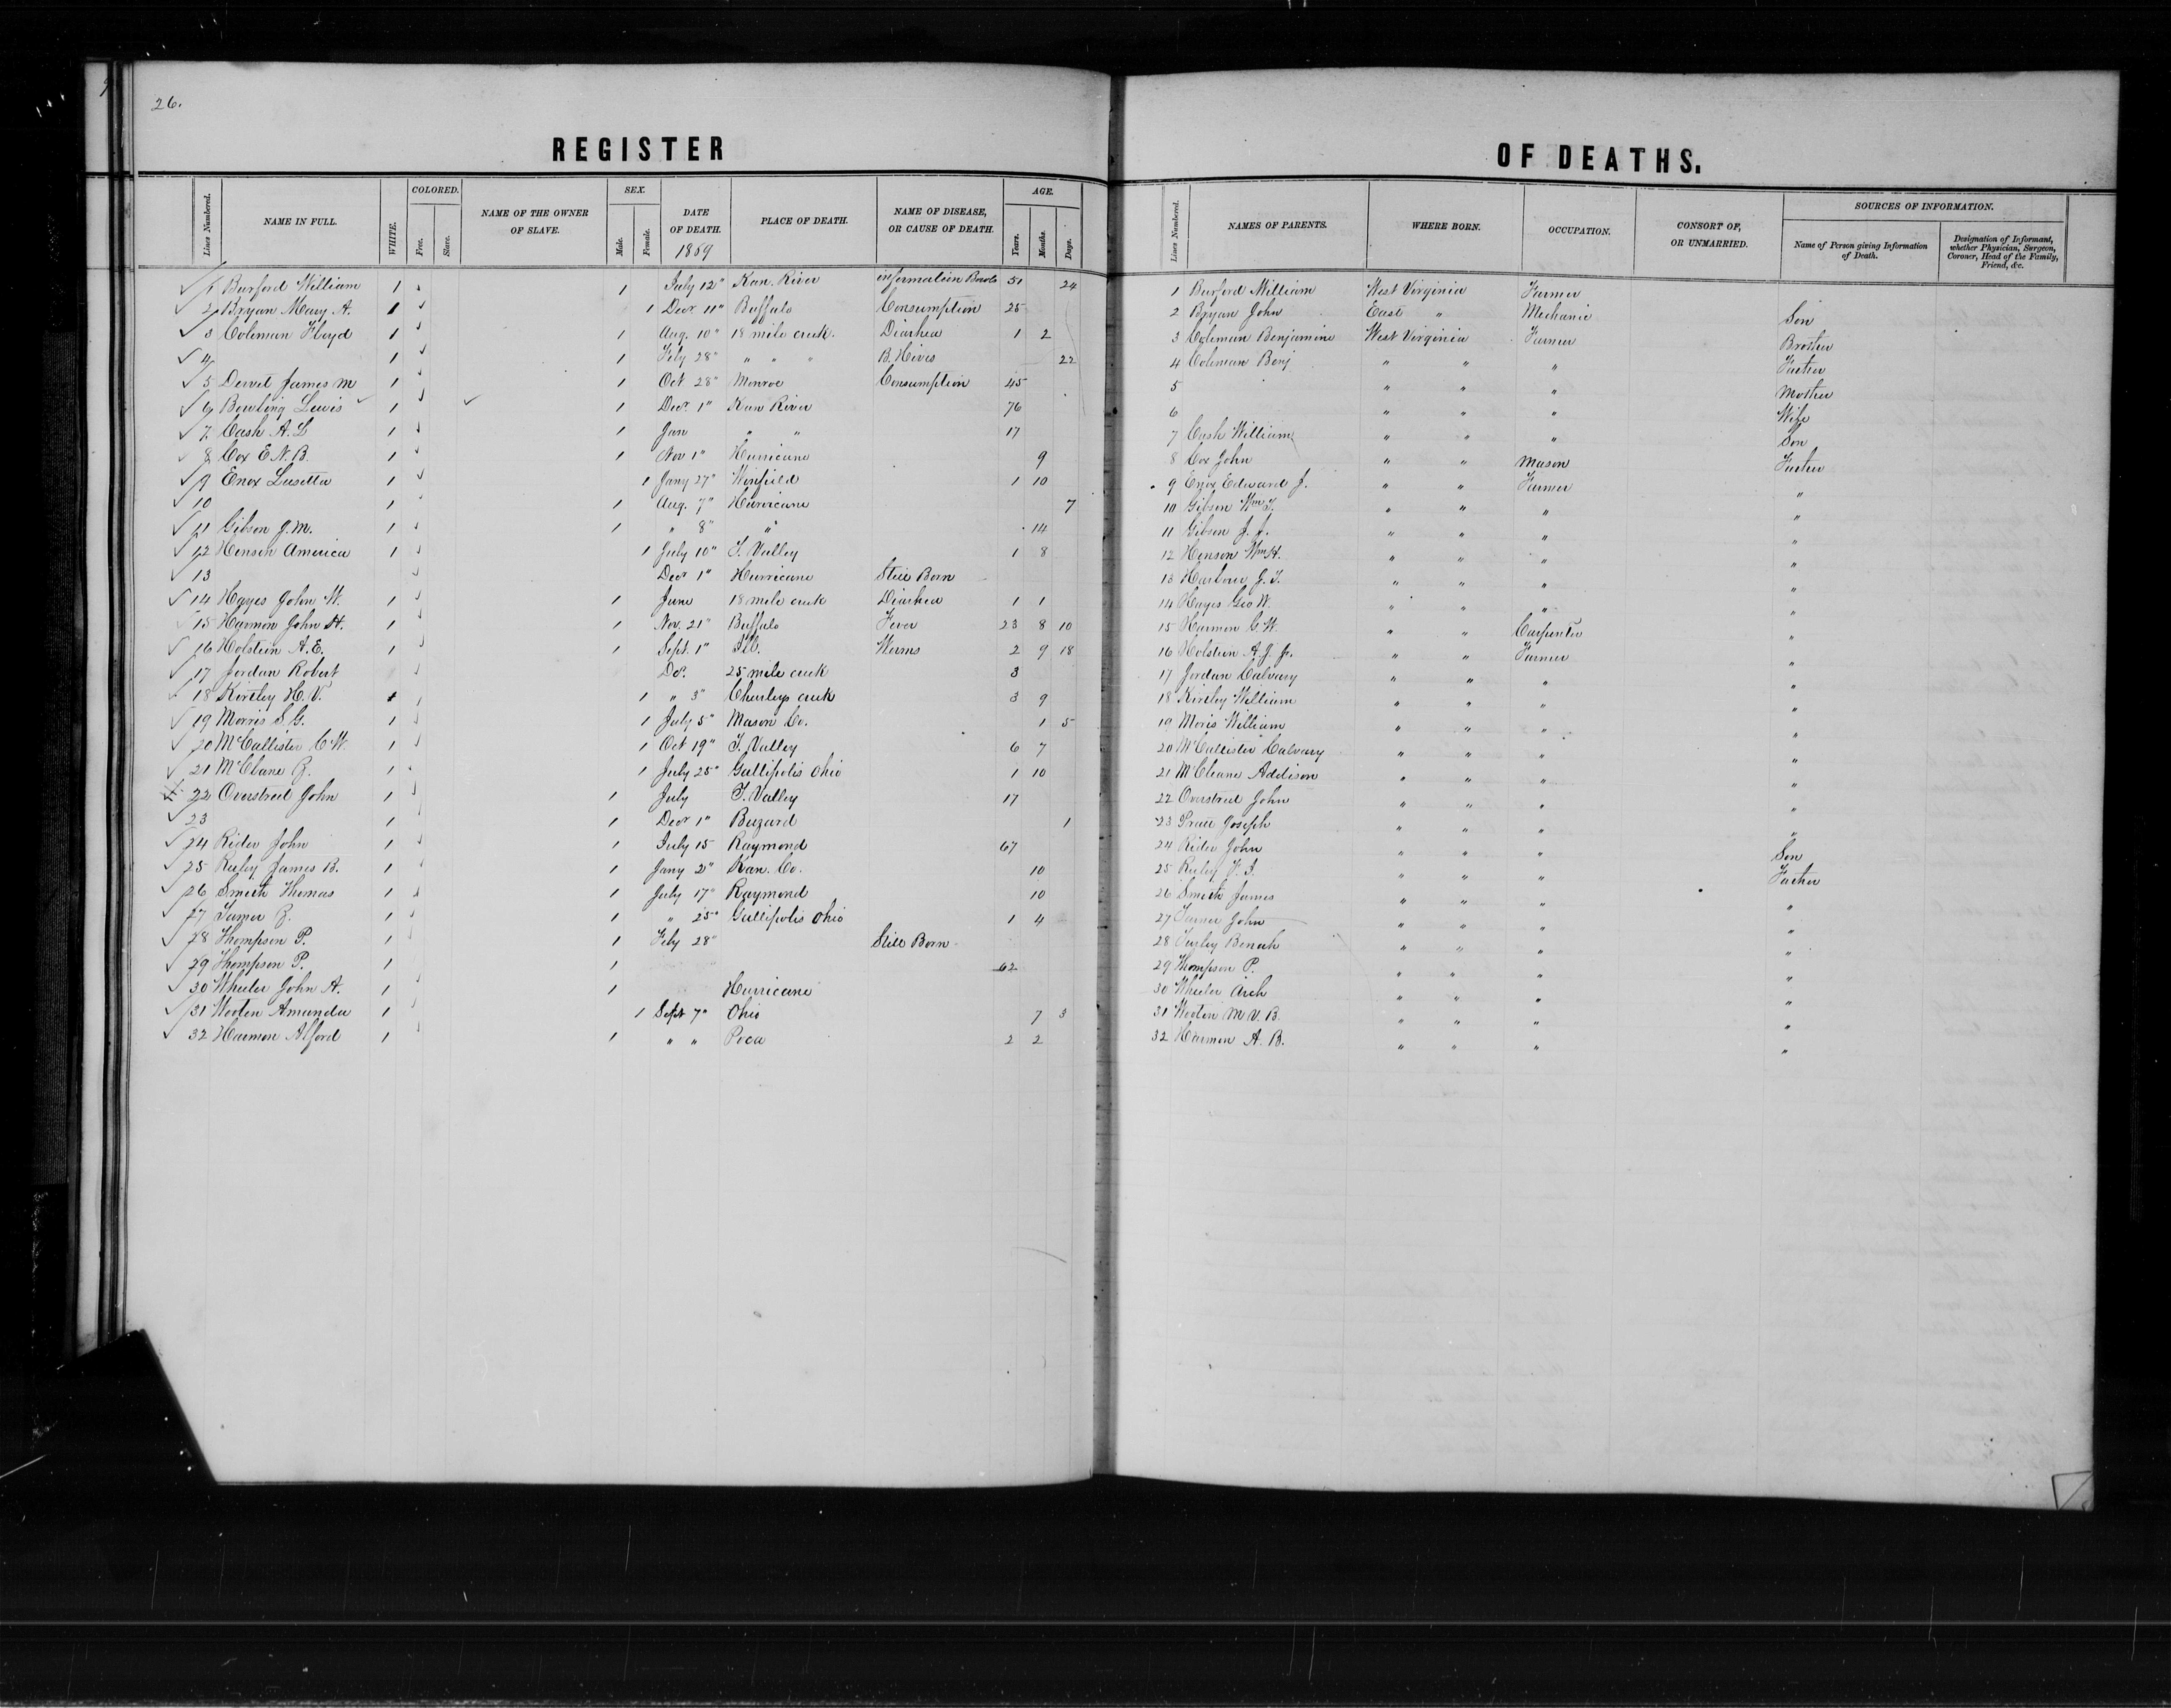 26.
REGISTER
Lines Numbered. NAME IN FULL. WHITE. COLORED. Free. Slave. NAME OF THE OWNER OF SLAVE. SEX. Male. Female. DATE OF DEATH. 1869 PLACE OF DEATH. NAME OF DISEASE, OR CAUSE OF DEATH. AGE. Years. Months. Days.
1 Burford William 1 1 July 12" Kan. River information Bowls 51 24
2 Bryan Mary A. 1 1 Decr 11" Buffalo Consumption 25
3 Coleman Floyd 1 1 Aug. 10" 18 mile creek. Diarhea 1 2
4 1 1 Feby 28" " " " B. Hives 22
5 James M 1 1 Oct 28" Monroe Consumption 45
6 Bowling Lewis 1 1 Decr 1" Kan River 76
7 Cash A. L 1 1 Jan " " 17
8 Cox E. N. B. 1 1 Nov 1" Hurricane 9
9 Enox Lusetta 1 1 Jany 27" Winfield 1 10
10 1 1 Aug. 7" Hurricane 7
11 Gibson J. M. 1 1 " 8" " 14
12 Henson America 1 1 July 10" T. Valley 1 8
13 Decr 1" Hurricane Still Born
14 Hayes John W. 1 1 June 18 mile creek Diarhea 1 1
15 Harmon John H. 1 1 Nov. 21" Buffalo Fever 23 8 10
16 Holstein A. E. 1 1 Sept. 1" Worms 2 9 18
17 Jordan Robert Do. 25 mile creek 3
18 Kirtley H. V. 1 1 " 3" Charleys creek 3 9
19 Morris S. G. 1 1 July 5" Mason Co. 1 5
20 McCallister C W. 1 1 Oct 19" T. Valley 6 7
21 McClane Z. 1 1 July 25" Gallipolis Ohio 1 10
22 Overstreet John 1 1 July T. Valley 17
23 1 1 Decr 1" Buzard 1
24 Rider John 1 1 July 15 Raymond 67
25 James B. 1 1 Jany 2" Kan. Co. 10
26 Smith Thomas 1 1 July 17" Raymond 10
27 Z. 1 1 " 25" Gallipolis Ohio 1 4
28 Thompson P. 1 1 Feby 28" Still Born
29 Thompson P. 1 1 62
30 Wheeler John A. 1 1 Hurricane
31 Wooten Amanda 1 1 Sept 7" Ohio 7 3
32 Harmon Alford 1 1 " " Poca 2 2
OF DEATHS.
Lines Numbered. NAMES OF PARENTS. WHERE BORN. OCCUPATION. CONSORT OF, OR UNMARRIED. SOURCES OF INFORMATION. Name of Person giving Information of Death. Designation of Informant, whether Physician, Surgeon, Coroner, Head of the Family, Friend, &c.
1 Burford William West Virginia Farmer
2 Bryan John East " Mechanic Son
3 Coleman Benjamine West Virginia Farmer Brother
4 Coleman Benj " " " Father
5 " " " Mother
6 " " " Wife
7 Cash William " " " Son
8 Cox John " " Mason Father
9 Enox Edward J. " " Farmer "
10 Gibson Wm T. " " " "
11 Gibson J. J. " " " "
12 Henson Wm H. " " " "
13 Harbour J. T. " " " "
14 Hayes Geo W. " " " "
15 Harmon C. W. " " Carpenter "
16 Holstein A. J. Jr. " " Farmer "
17 Jordan Calvary " " " "
18 Kirtley William " " " "
19 Moris William " " " "
20 McCallister Calvary " " " "
21 McCleane Addison " " " "
22 Overstreet John " " " "
23 Joseph " " " "
24 Rider John " " " Son
25 " " " Father
26 Smith James " " " "
27 John " " " "
28 Turley Benah " " " "
29 Thompson P. " " " "
30 Wheeler Arch " " " "
31 Wooten M V. B. " " " "
32 Harmon A. B. " " " "